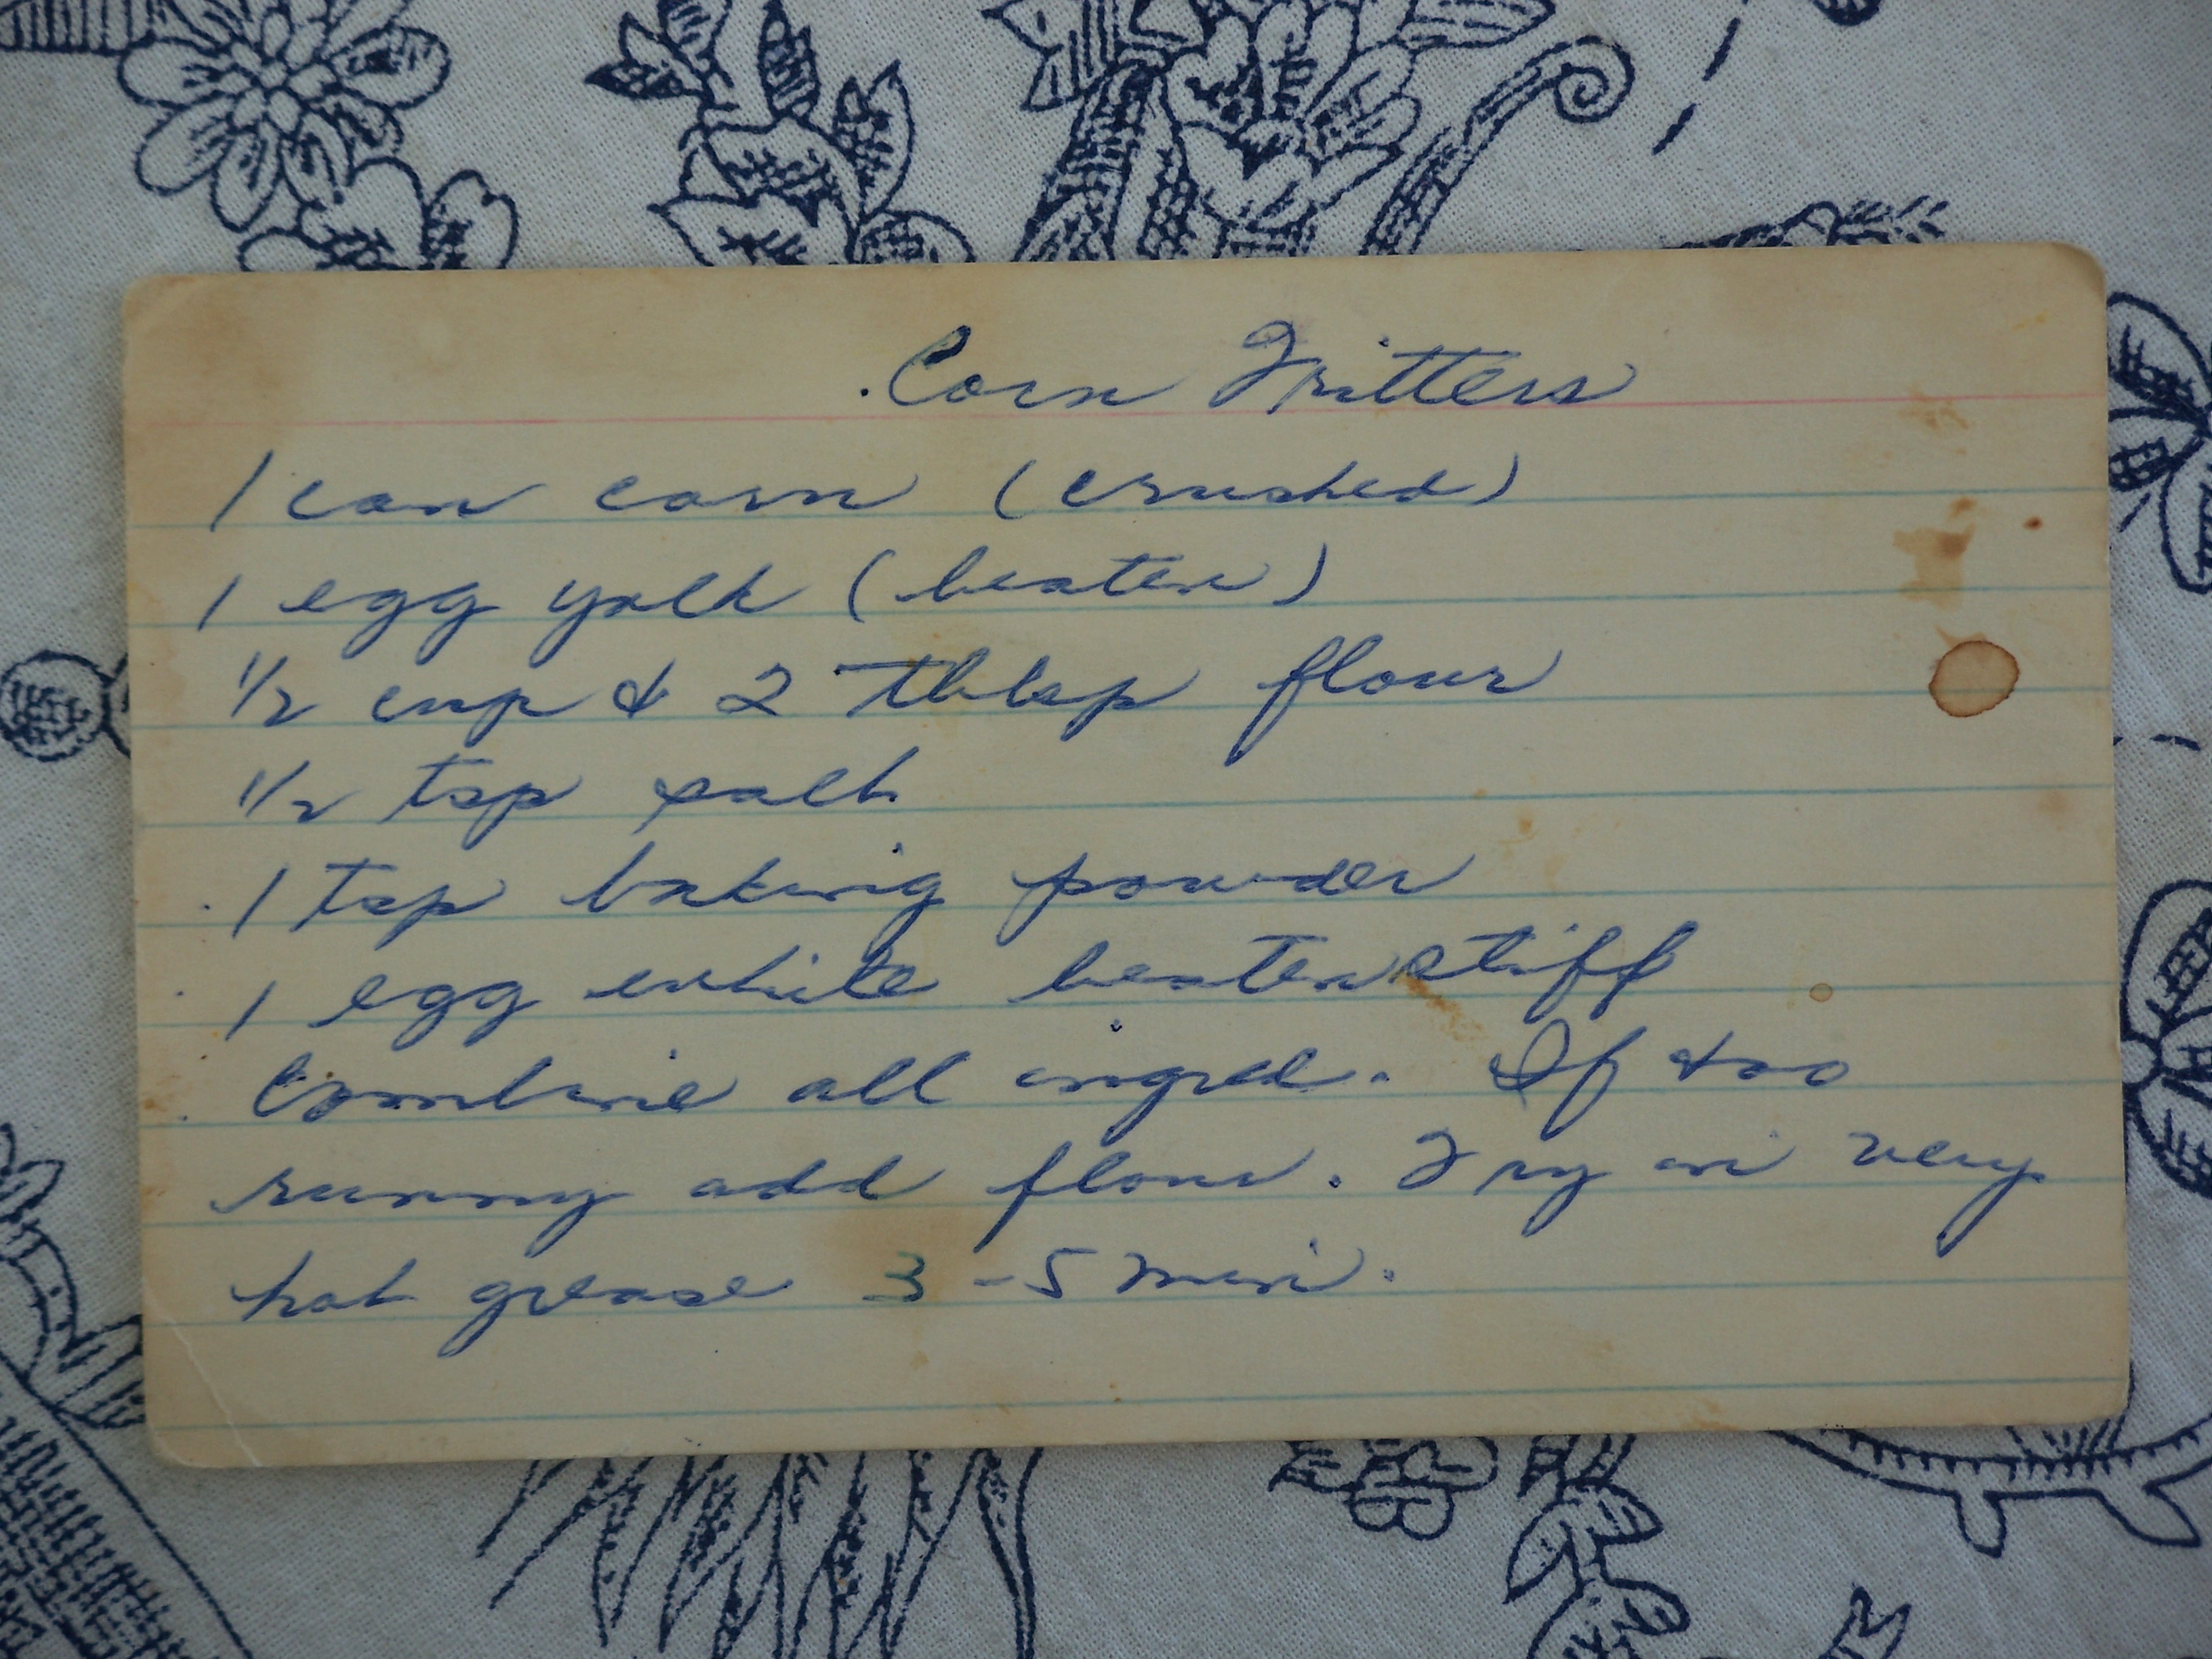 Corn Fritters
1 can corn (crushed)
1 egg yolk (beaten)
1/2 cup & 2 tblsp flour
1/2 tsp salt
1 tsp baking powder
1 egg white beaten stiff
Combine all ingred. If too
runny add flour. Fry in very
hot grease 3-5 min.